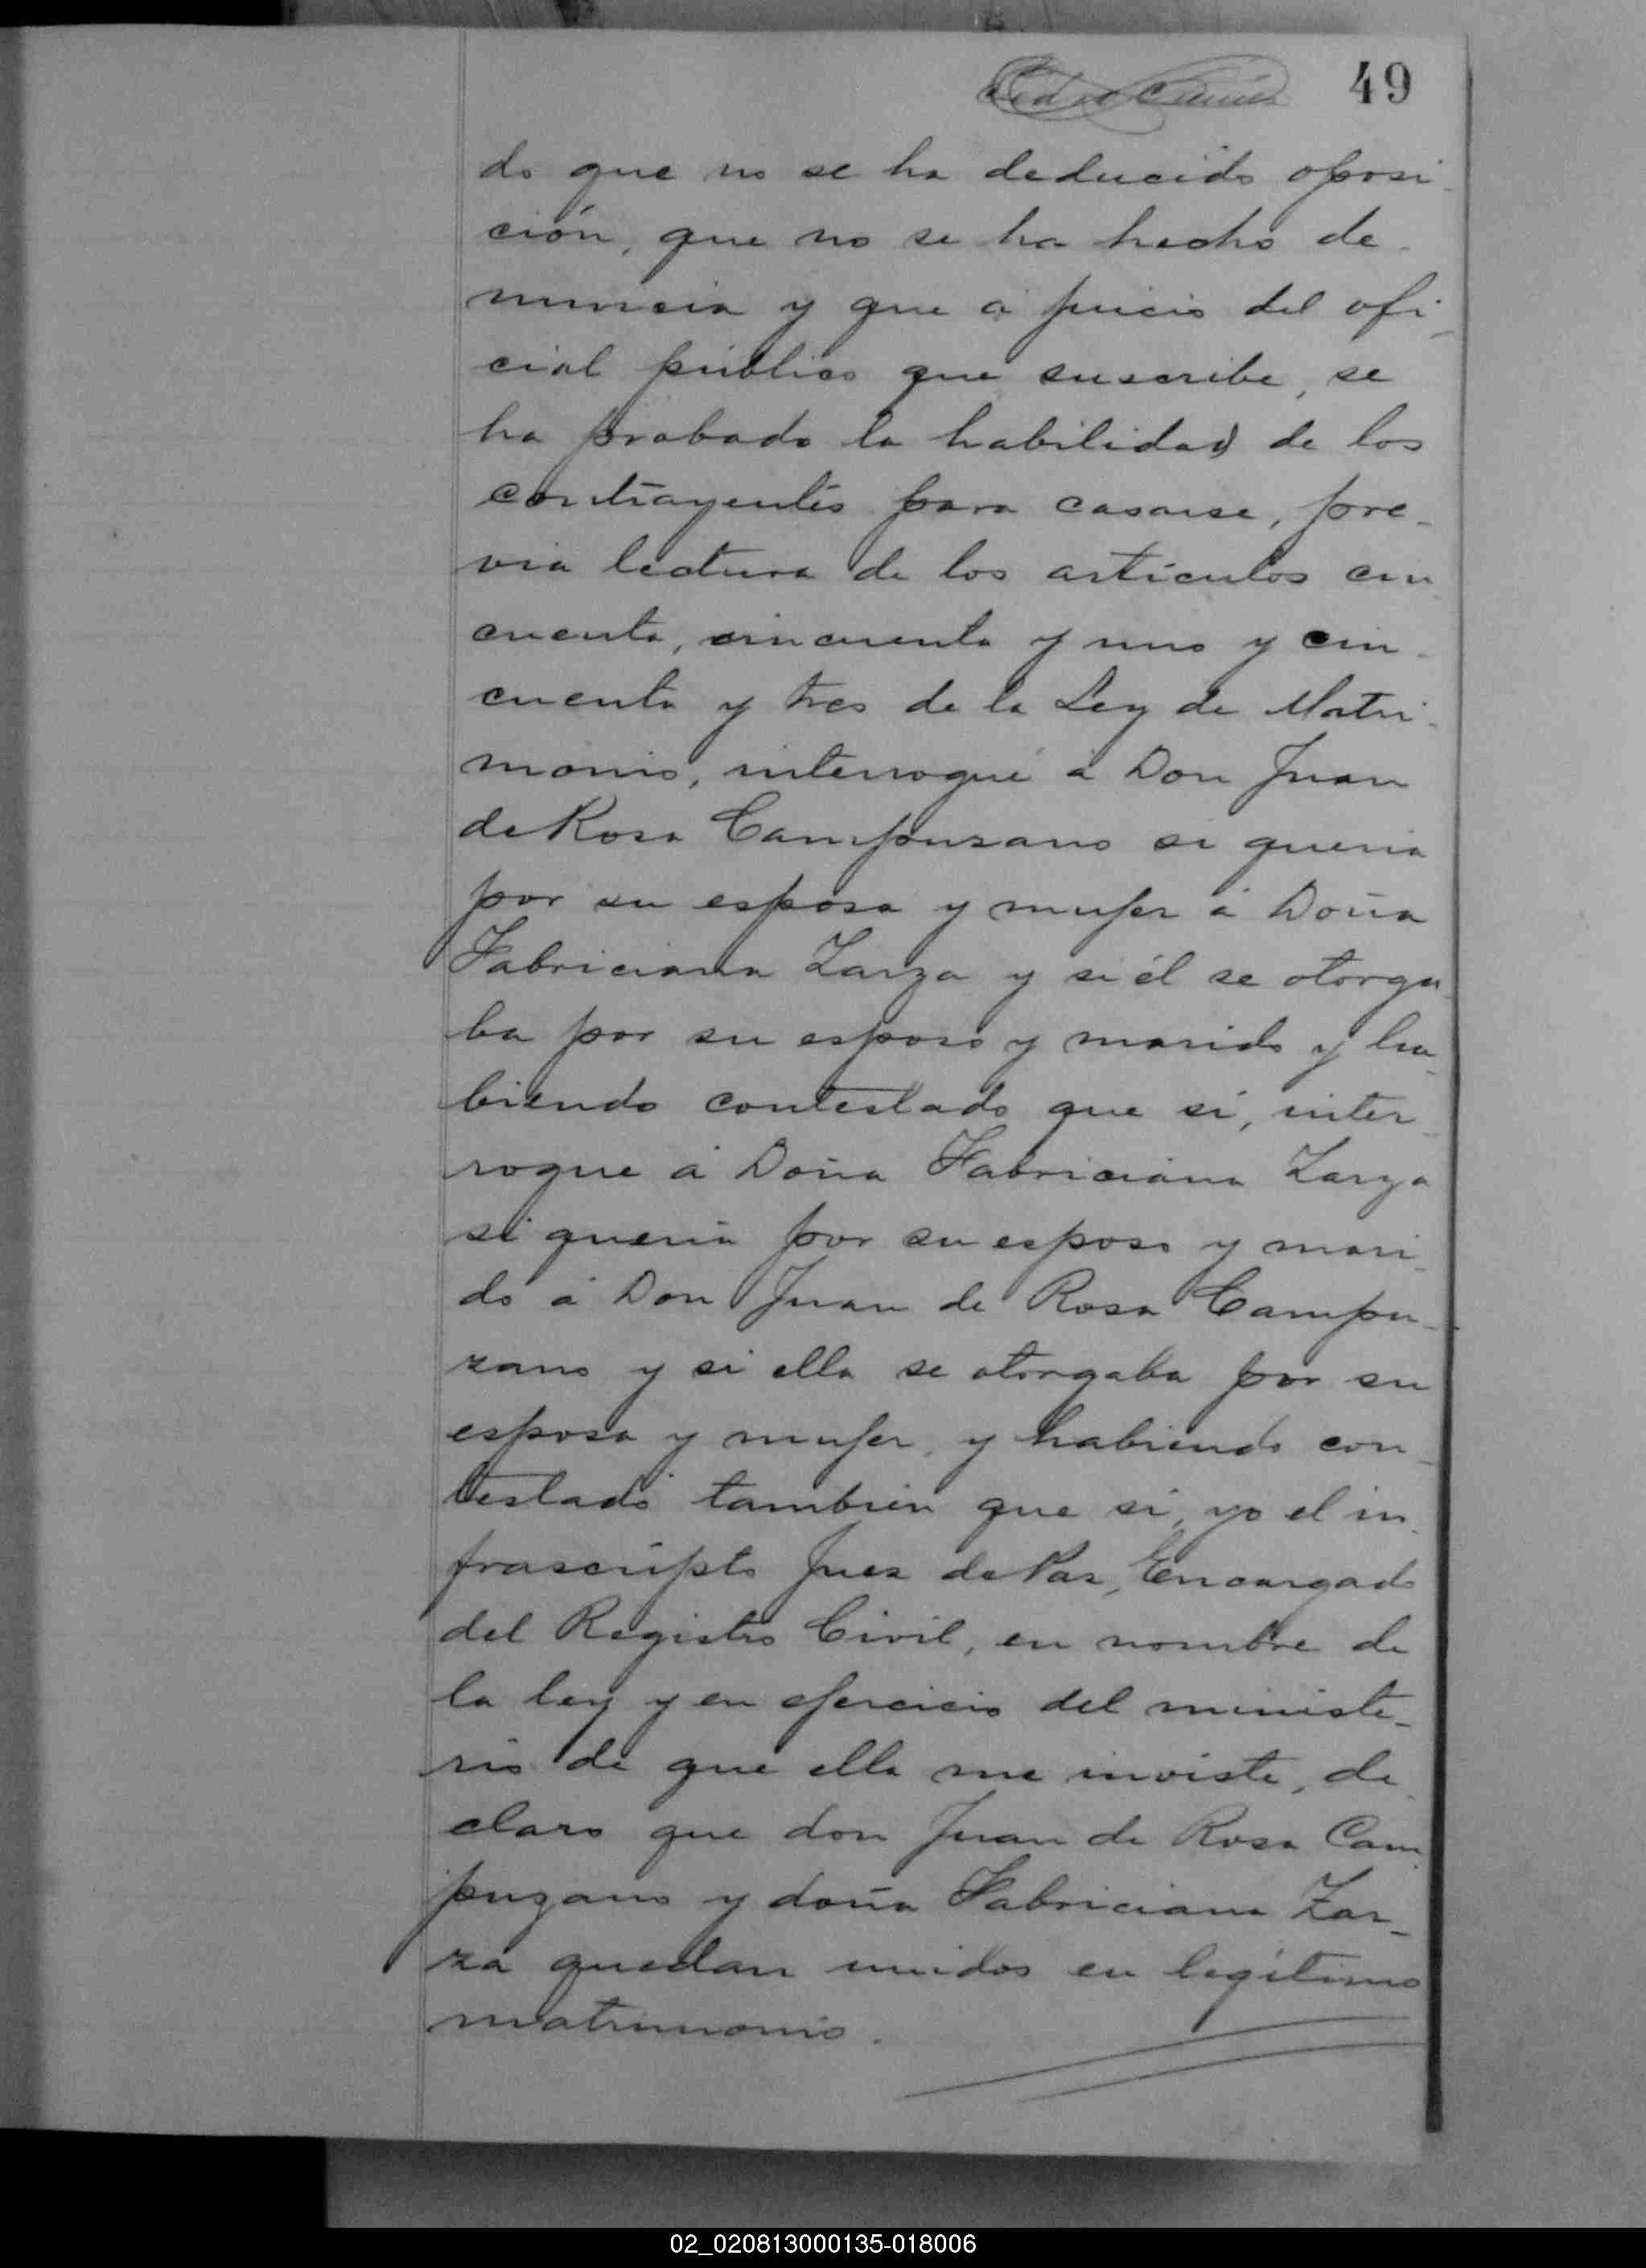 49
do que no se ha deducido oposi-
ción, que no se ha hecho de-
nuncia y que á juicio del ofi-
cial público que suscribe, se
ha probado la habilidad de los
contrayentes para casarse, pre-
via lectura de los artículos cin
cuenta, cincuenta y uno y cin-
cuenta y tres de la Ley de Matri-
monio, interrogué á Don Juan
de Rosa Campuzano si queria
por su esposa y mujer á Doña
Fabriciana Zarza y si él se otorga
ba por su esposo y marido y ha-
biendo contestado que sí, inter-
rogue á Doña Fabriciana Zarza
si queria por su esposo y mari-
do á Don Juan de Rosa Campu-
zano y si ella se otorgaba por su
esposa y mujer, y habiendo con-
testado también que si, yo el in-
frascripto Juez de Paz, Encargado
del Registro Civil, en nombre de
la ley y en ejercicio del ministe-
rio de que ella me inviste, de-
claro que don Juan de Rosa Cam
puzano y doña Fabriciana Zar-
za quedan unidos en legítimo
matrimonio.
02_020813000135-018006